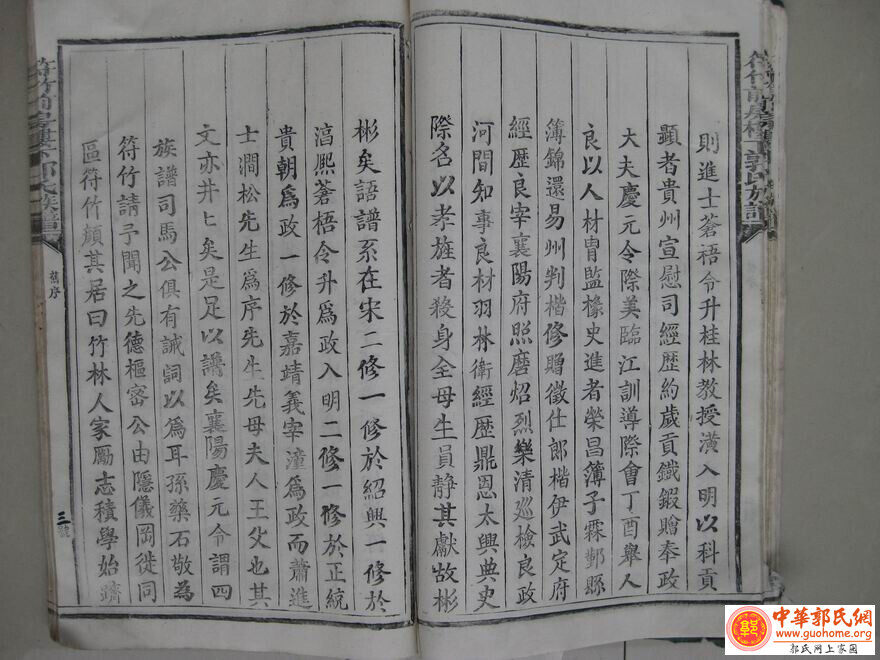 則進士蒼梧令升桂林教授潢入明以科貢
顯者貴州宣慰司經歷約歲貢鐵鍜贈奉政
大夫慶元令際美臨江訓導際會丁酉舉人
良以人材冑監椽史進者榮昌簿子霖鄞縣
簿錦還易州判楷修贈徵仕郎楷伊武定府
經歷良宰襄陽府照磨炤烈樂清巡檢良政
河間知事良材羽林衛經歷鼎恩太興典史
際名以孝旌者殺身全母生員靜其獻故彬
彬矣語譜系在宋二修一修於紹興一修於
淳熙蒼梧令升為政入明二修一修於正統
貴朝為政一修於嘉靖義宰潼為政而蕭進
士澗松先生為序先生先母夫人王父也其
文亦井匕矣是足以譜矣襄陽慶元令謂四
族譜司馬公俱有誠詞以為耳孫藥石敬為
符竹請予聞之先德樞密公由隱儀岡徙同
區符竹顏其居曰竹林人家勵志積學始躋
舊序
三號
符竹前房樓下郭氏族譜
中華郭氏網
www.guohome.org
郭氏網上家園